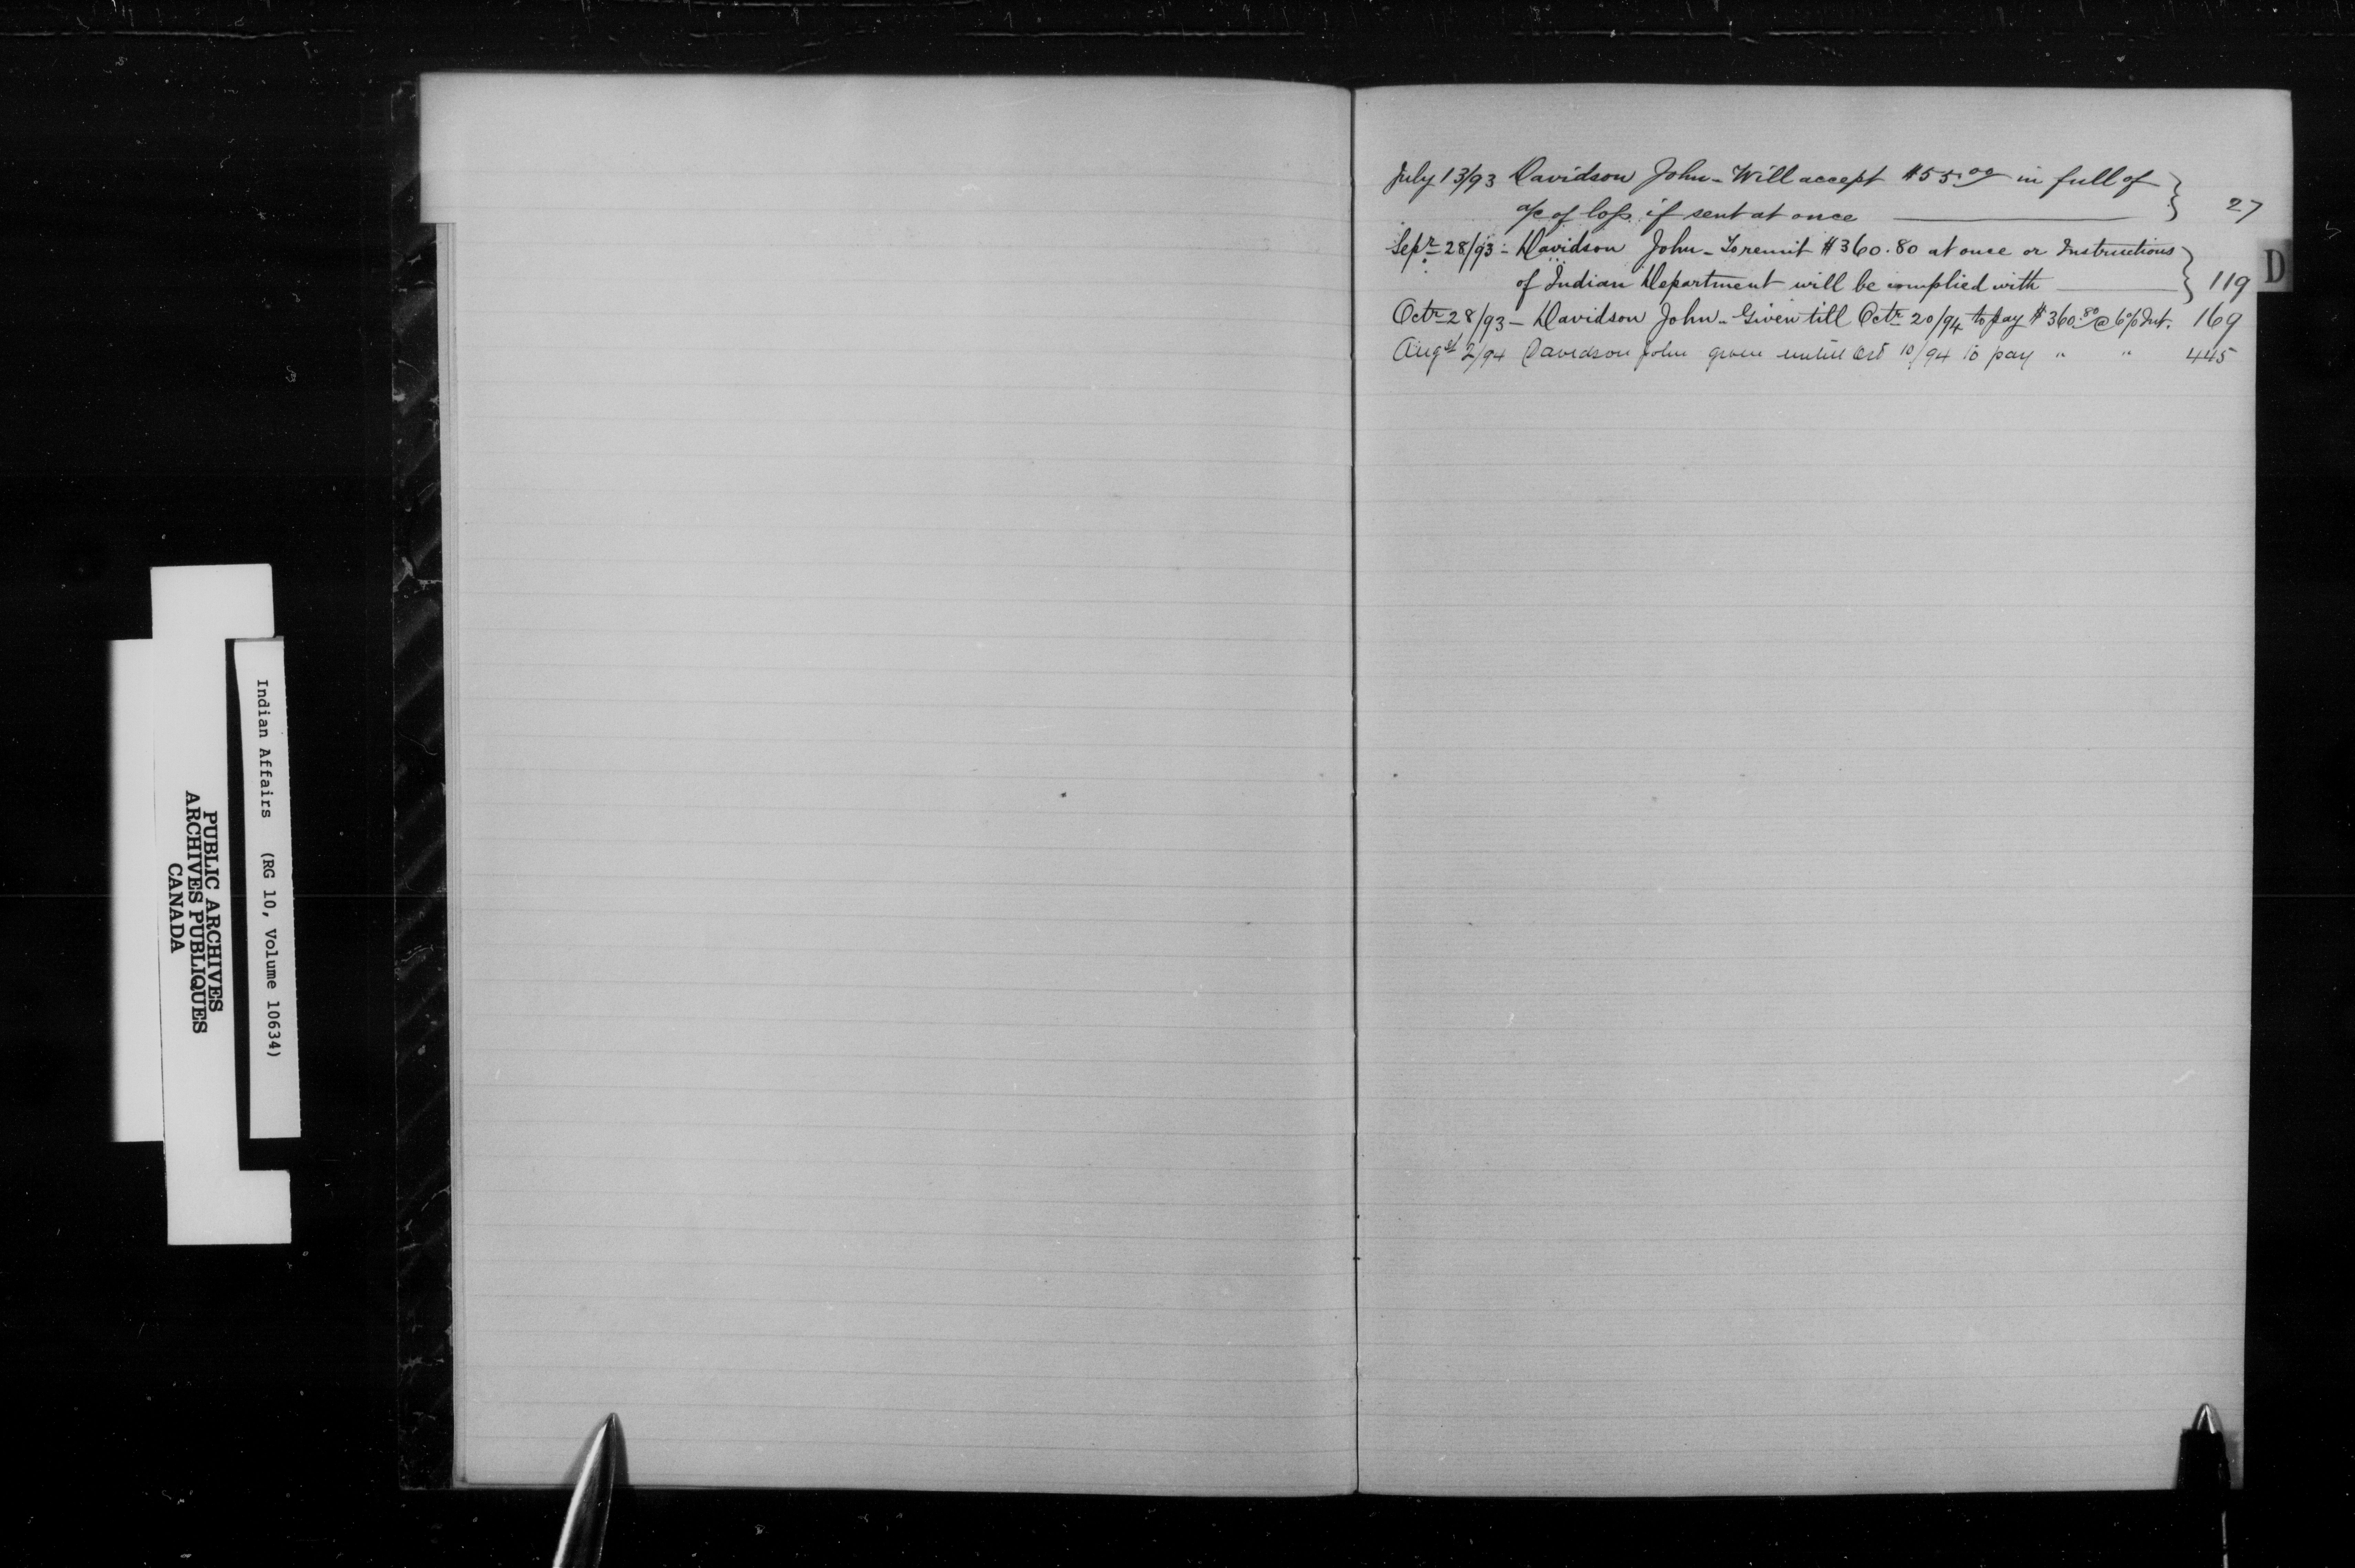 July 13/93 Davidson John - Will accept $55.00 in full of
a/c of loss if sent at once 27
Sepr 28/93 - Davidson John - To remit $360.80 at once or Instructions
of Indian Department will be complied with 119
Octr 28/93 - Davidson John - Given till Octr 20/94 to pay $360.80 @ 6% Int. 169
Augst 2/94 Davidson John given untill Oct 10/94 to pay " " 445
D
Indian Affairs (RG 10, Volume 10634)
PUBLIC ARCHIVES
ARCHIVES PUBLIQUES
CANADA